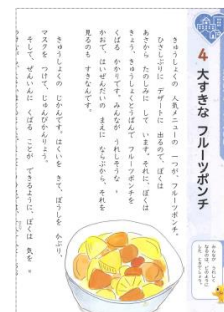 4 大すきな フルーツポンチ
きゅうしょくの 人気メニューの 一つが、フルーツポンチ。
ひさしぶりに デザートに 出るので、ぼくは
あさから たのしみに して います。それに、ぼくは
きょう、きゅうしょくとうばんで、フルーツポンチを
くばる かかりです。みんなが うれしそうな 。
かおで、はいぜんだいの まえに ならぶから、それを
見るのも すきなんです。
きゅうしょくの じかんです。はくいを きて、ぼうしを かぶり、
マスクを つけて、じゅんびかんりょう。
そして、ぜんいんに くばる ことが できるように、ぼくは 気を 。